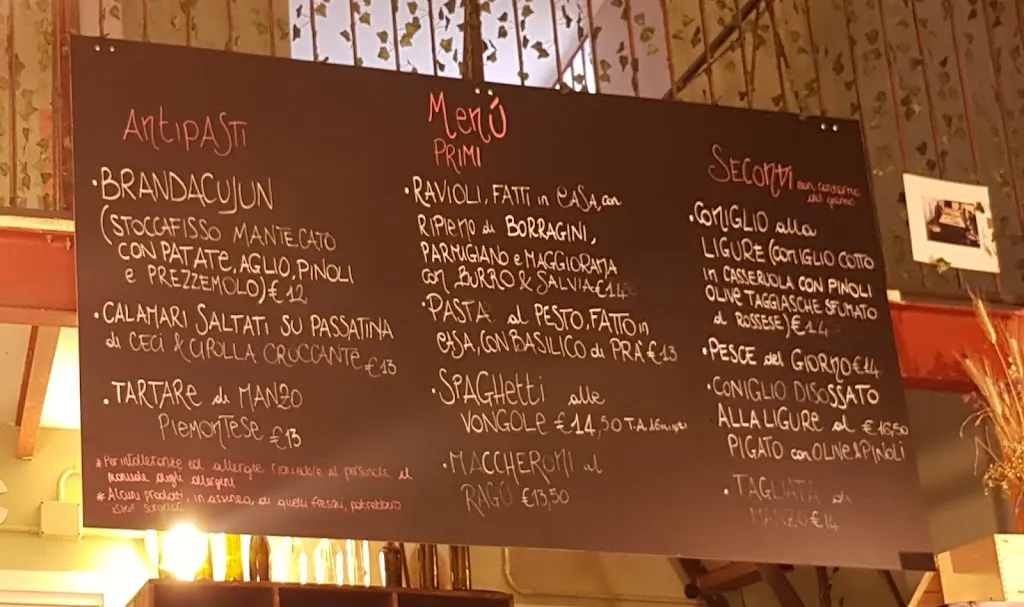 Antipasti
·BRANDACUJUN
(STOCCAFISSO MANTECATO
CON PATATE, AGLIO, PINOLI
e PREZZEMOLO) €12
·CALAMARI SALTATI SU PASSATINA
di CECI & CIPOLLA CROCCANTE €13
·TARTARE di MANZO
PIEMONTESE €13
* Per intolleranze ed allergie richiedere al personale il
manuale degli allergeni
* Alcuni prodotti, in assenza di quelli freschi, potrebbero
Menù
PRIMI
·RAVIOLI, FATTI in CASA, con
RIPIENO di BORRAGINI,
PARMIGIANO e MAGGIORANA
con BURRO & SALVIA €14
·PASTA al PESTO, FATTO in
CASA, CON BASILICO di PRA' €13
·SPAGHETTI alle
VONGOLE €14,50 T.A.
·MACCHERONI al
RAGÙ €13,50
SECONDI con contorno
del giorno
·CONIGLIO alla
LIGURE (CONIGLIO COTTO
in CASSERUOLA CON PINOLI
OLIVE TAGGIASCHE SFUMATO
al ROSSESE) €14
·PESCE del GIORNO €14
·CONIGLIO DISOSSATO
ALLA LIGURE al €16,50
PIGATO con OLIVE & PINOLI
·TAGLIATA di
MANZO €14